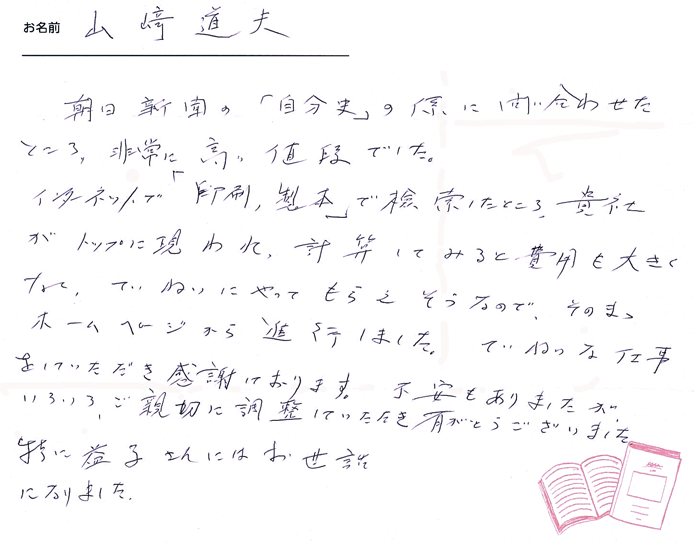 お名前 山﨑道夫
朝日新聞の「自分史」の係に問い合わせた
ところ、非常に高い値段でした。
インターネットで「印刷,製本」で検索したところ、貴社
がトップに現われ、計算してみると費用も大きく
なく、ていねいにやってもらえそうなので、そのまま
ホームページから進行しました。ていねいな仕事
をしていただき感謝しております。不安もありましたが、
いろいろ、ご親切に調整していただき有がとうございました
特に益子さんにはお世話
になりました.